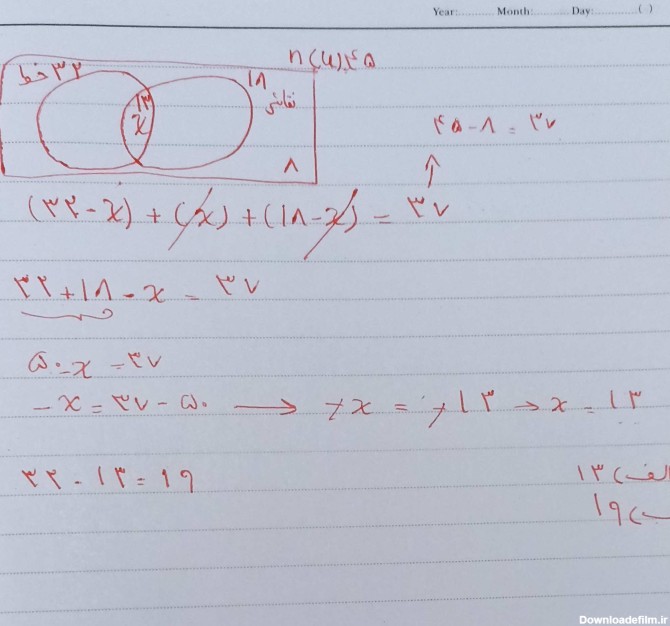 Year:.......... Month:.......... Day:.......... ( )
n(u)=۴۵
۳۲ خط
۱۸
نقاشی
۱۳
x
۸
۴۵-۸=۳۷
(۳۲-x)+(x)+(۱۸-x)=۳۷
۳۲+۱۸-x=۳۷
۵۰-x=۳۷
-x=۳۷-۵۰ → -x=-۱۳ → x=۱۳
۳۲-۱۳=۱۹
الف) ۱۳
ب) ۱۹
Downloadefilm.ir